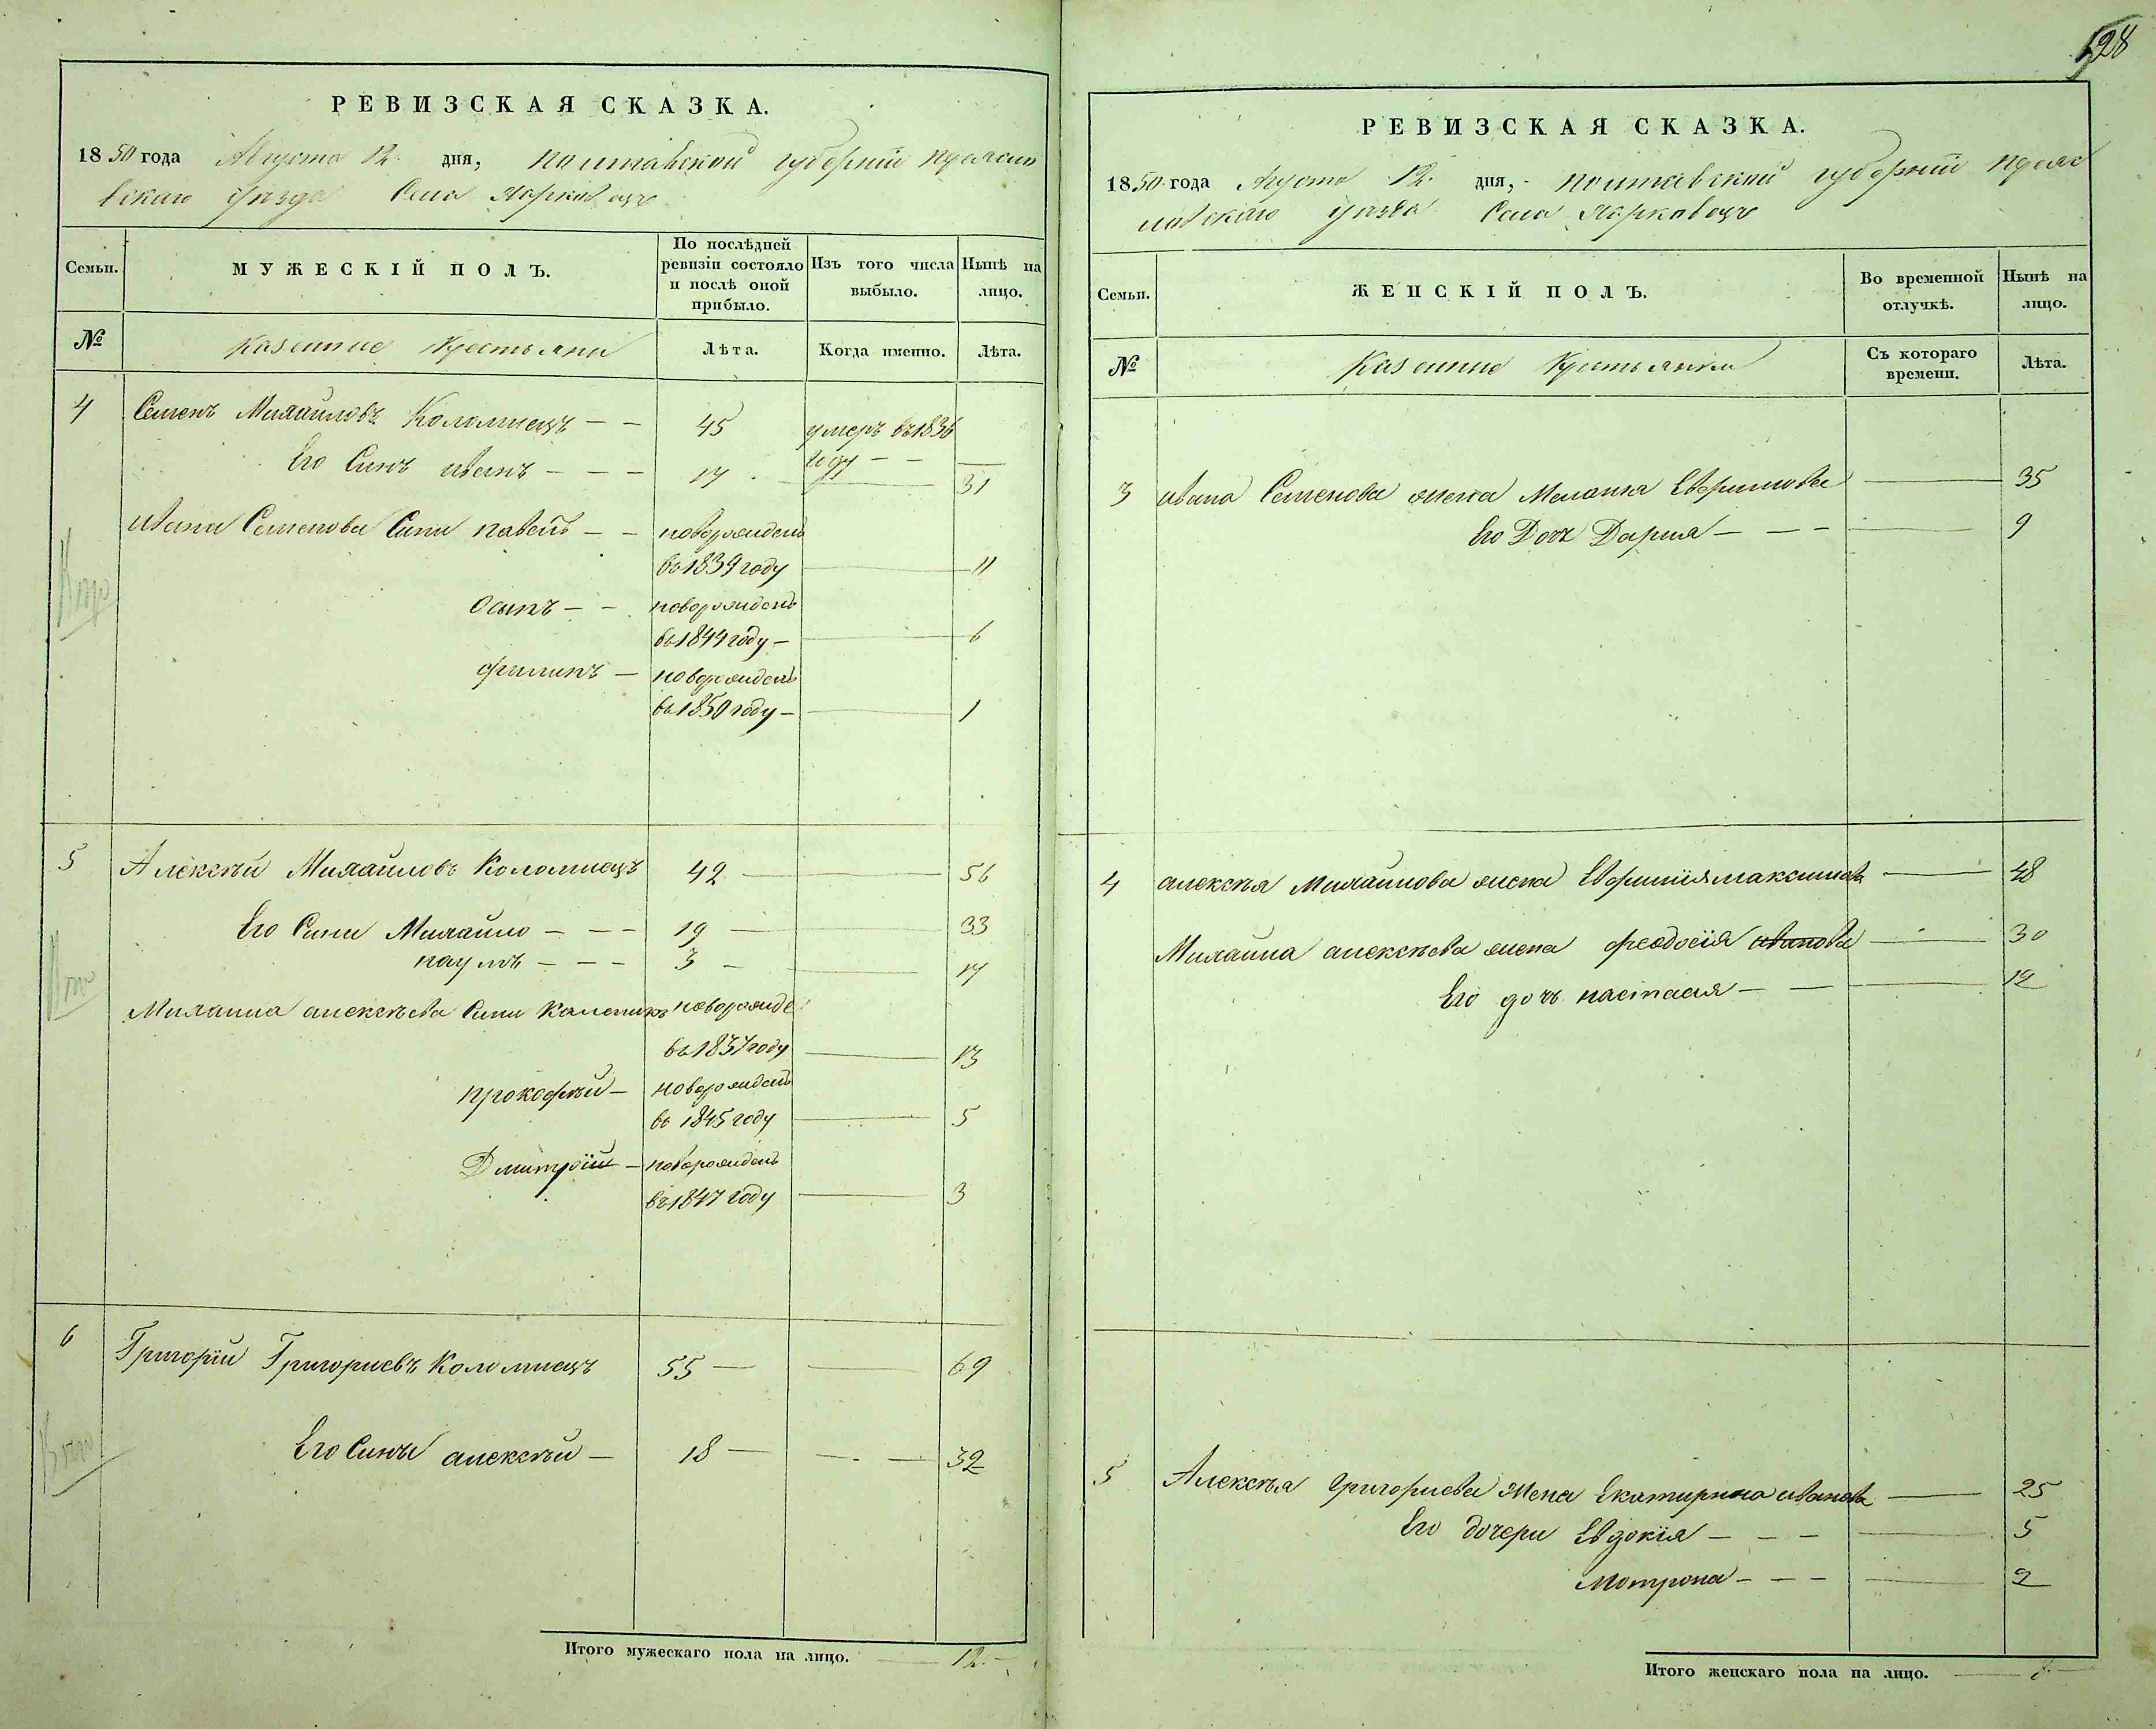 128
РЕВИЗСКАЯ СКАЗКА.
1850 года Августа 12. дня, Полтавской губернїи Переясла
вского уезда Села Харковецъ
Семьи. МУЖЕСКІЙ ПОЛЪ. По послѣдней ревизіи состояло и послѣ оной прибыло. Изъ того числа выбыло. Нынѣ на лицо.
№ Казенние Крестьяни Лѣта. Когда именно. Лѣта.
4 Семенъ Михайловъ Коломиецъ — — 45 умеръ въ 1836
году — —
Его Синъ иванъ — — — 17 31
ивана Семенова Сини павелъ — — новорожденъ
въ 1839 году 11
Осипъ — — новорожденъ
въ 1844 году — 6
филипъ — новорожденъ
въ 1850 году — 1
5 Алексѣй Михайловъ Коломиецъ 42 56
Его Сини Михайло — — — 19 33
наумъ — — — 3 17
Михаила алексѣева Сини Каленикъ новорожде
въ 1837 году 13
прокофѣй — новорожденъ
въ 1845 году 5
Дмитрїй — новорожденъ
въ 1847 году 3
6 Григорїй Григориевъ Коломиецъ 55 — 69
Его Синъ алексѣй — 18 — 32
Итого мужескаго пола на лицо. 12. —
РЕВИЗСКАЯ СКАЗКА.
1850 года Августа 12. дня, Полтавской губернїи Переяс
лавского уезда Села Харковецъ
Семьи. ЖЕНСКІЙ ПОЛЪ. Во временной отлучкѣ. Нынѣ на лицо.
№ Казенние Крестьянки Съ котораго времени. Лѣта.
3 ивана Семенова жена Меланка Ефимова 35
Его Дочъ Дария — — — 9
4 алексѣя Михайлова жена Ефимия максимова 48
Михаила алексѣева жена феодосїя иванова 30
Его дочъ настасия — — 12
5 Алексѣя григориева жена Екатирина иванова 25
Его дочери Евдокїя — — — 5
Мотрона — — — 2
Итого женскаго пола на лицо. 8 —